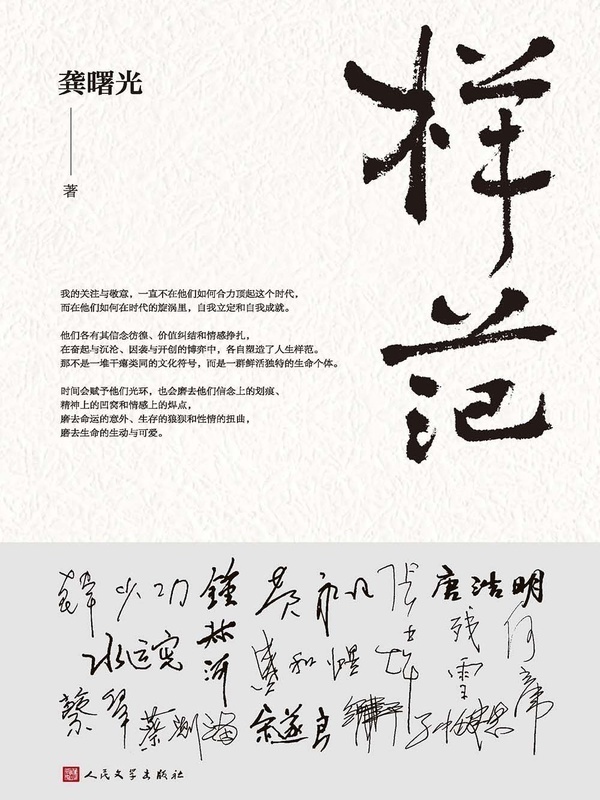 样范
龚曙光
著
我的关注与敬意，一直不在他们如何合力顶起这个时代，
而在他们如何在时代的旋涡里，自我立定和自我成就。
他们各有其信念彷徨、价值纠结和情感挣扎，
在奋起与沉沦、因袭与开创的博弈中，各自塑造了人生样范。
那不是一堆干瘪类同的文化符号，而是一群鲜活独特的生命个体。
时间会赋予他们光环，也会磨去他们信念上的划痕、
精神上的凹窝和情感上的焊点，
磨去命运的意外、生存的狼狈和性情的扭曲，
磨去生命的生动与可爱。
韓少功
鍾叔河
唐浩明
水运宪
盛和煜
残雪
何立伟
蔡皋
蔡测海
宋遂良
人民文学出版社